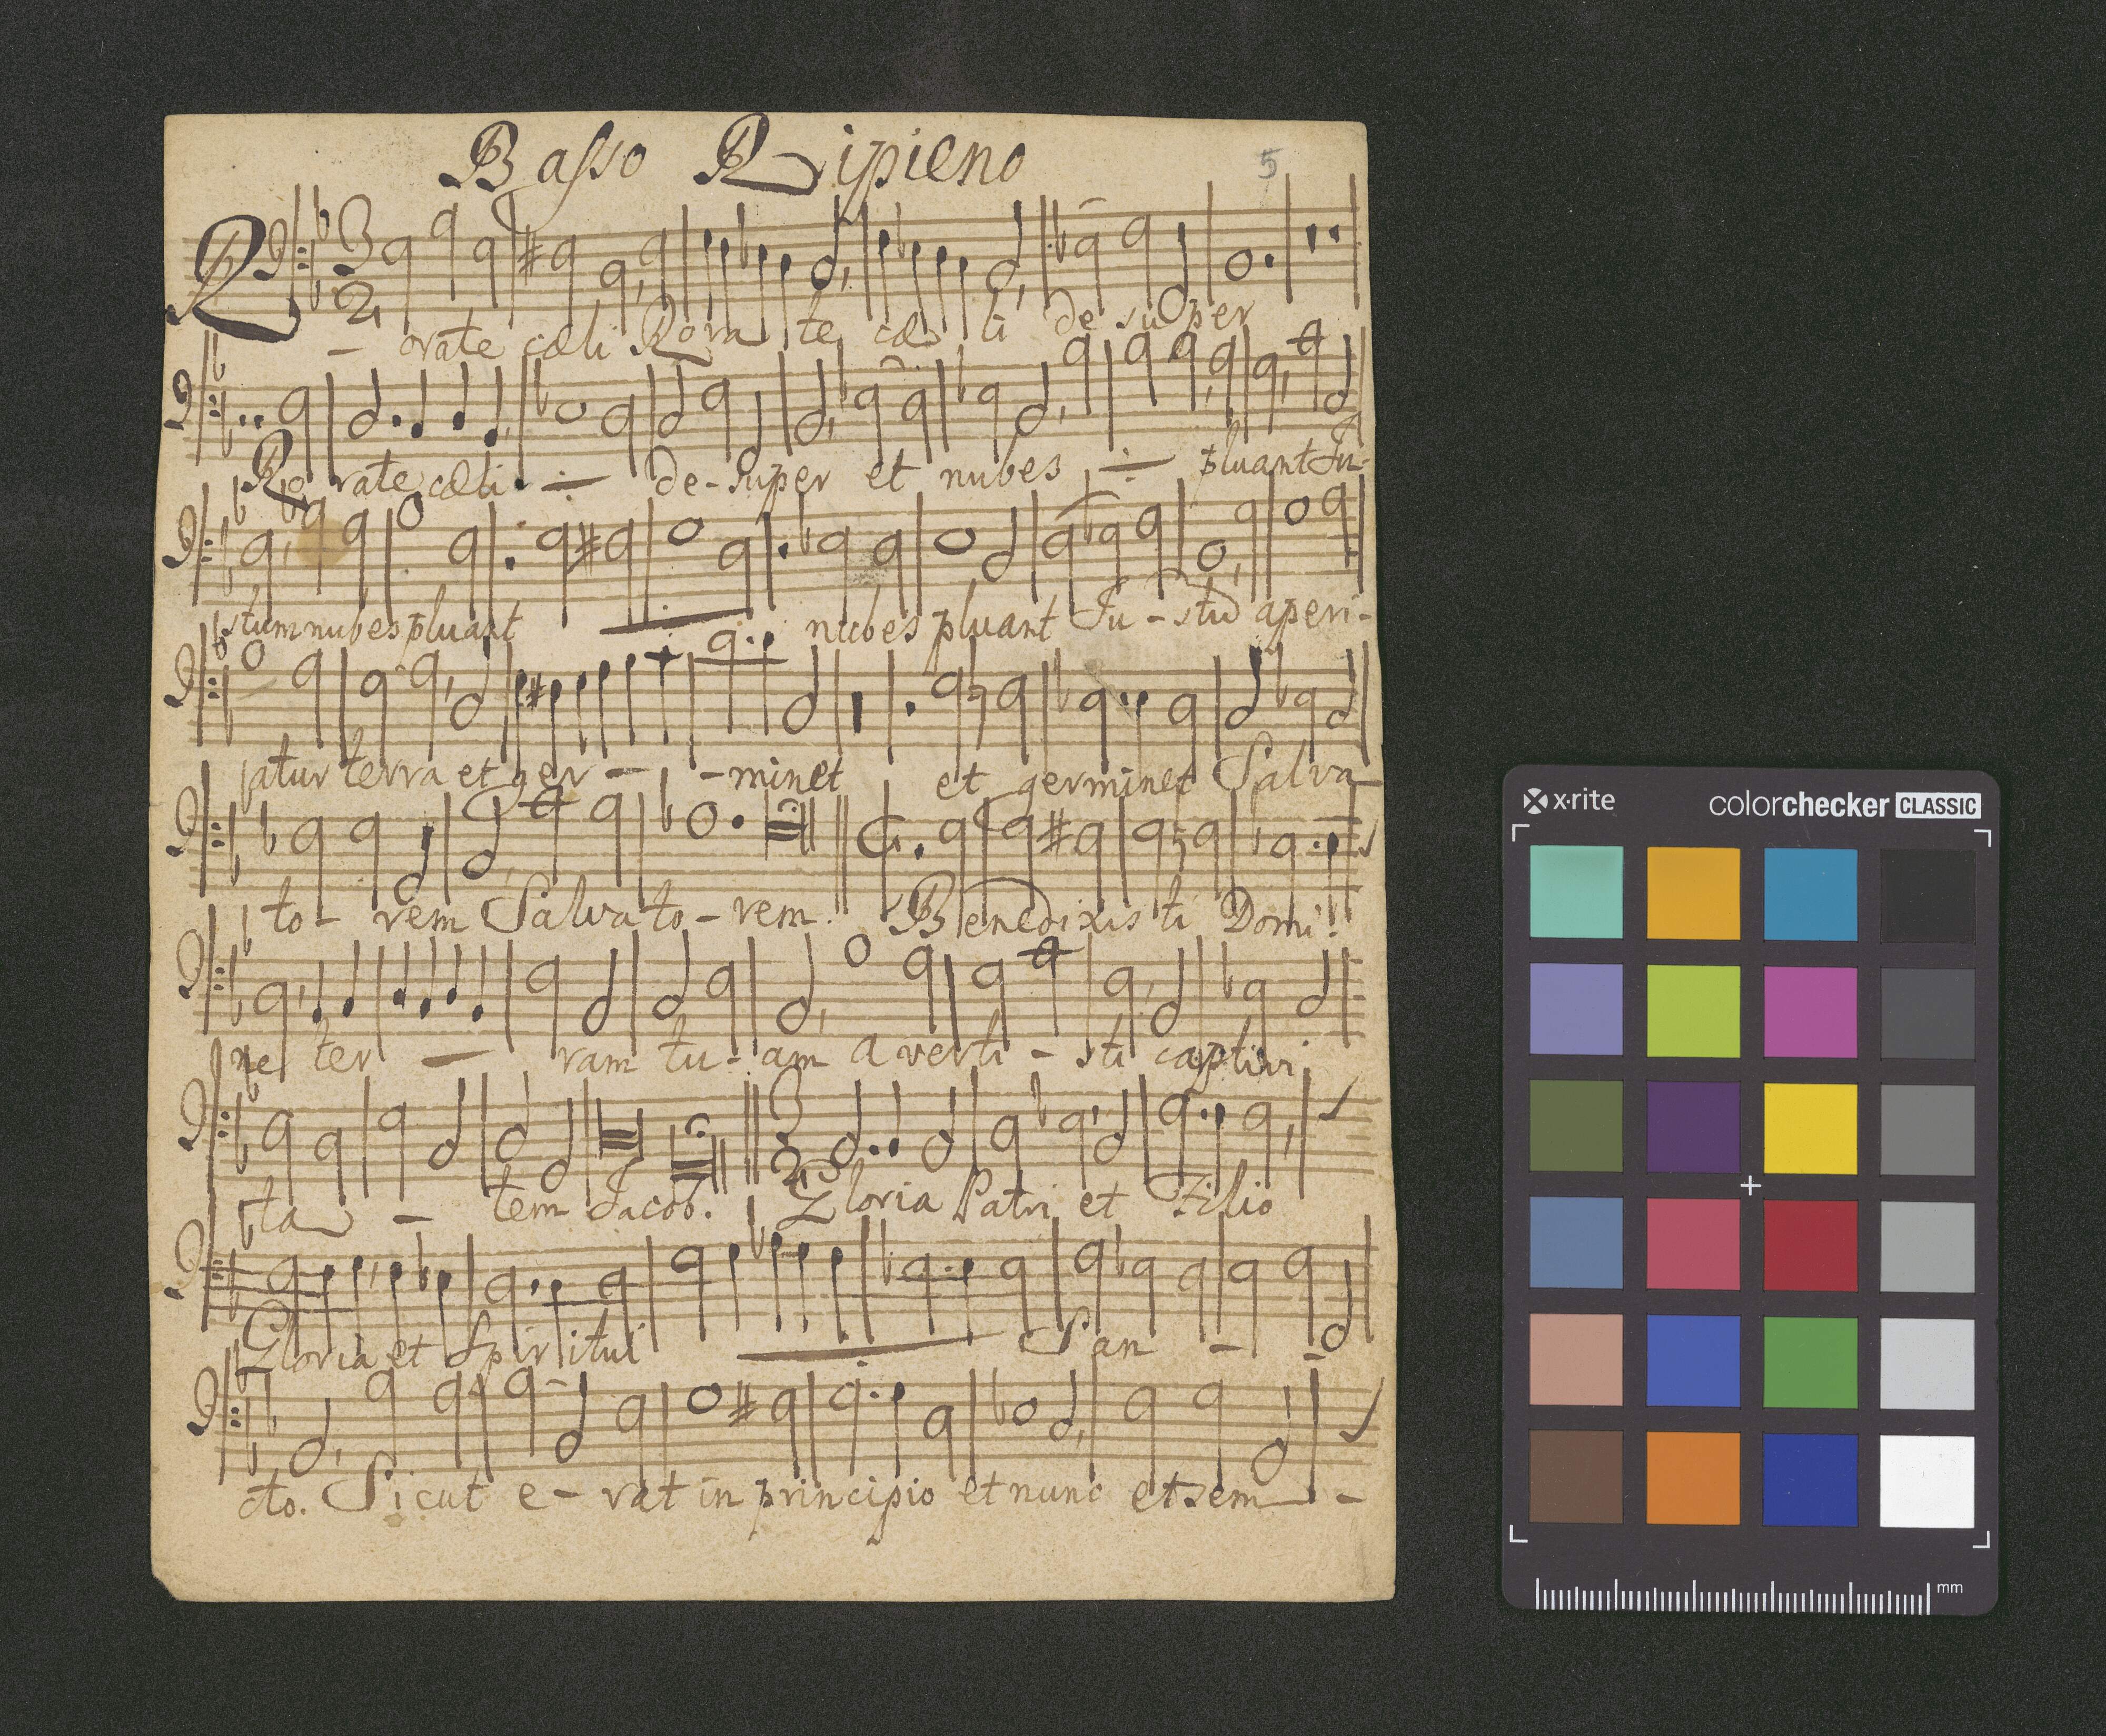 Basso Ripieno
5
Rorate cæli Rora te cæ li de su per
Ro rate cæli ÷ de-super et nubes ÷ pluant Ju-
stum nubes pluant ÷ nubes pluant Ju-stũ aperi-
atur terra et ger - - minet et germinet Salva
to- rem Salvato-rem. Benedixisti Domi:
ne ter — ram tu-am a verti - sti captivi
ta - tem Jacob. Gloria Patri et Filio
Gloria et Spiritui ÷ San - -
cto. Sicut e- rat in principio et nunc et sem -
x·rite
colorchecker CLASSIC
mm